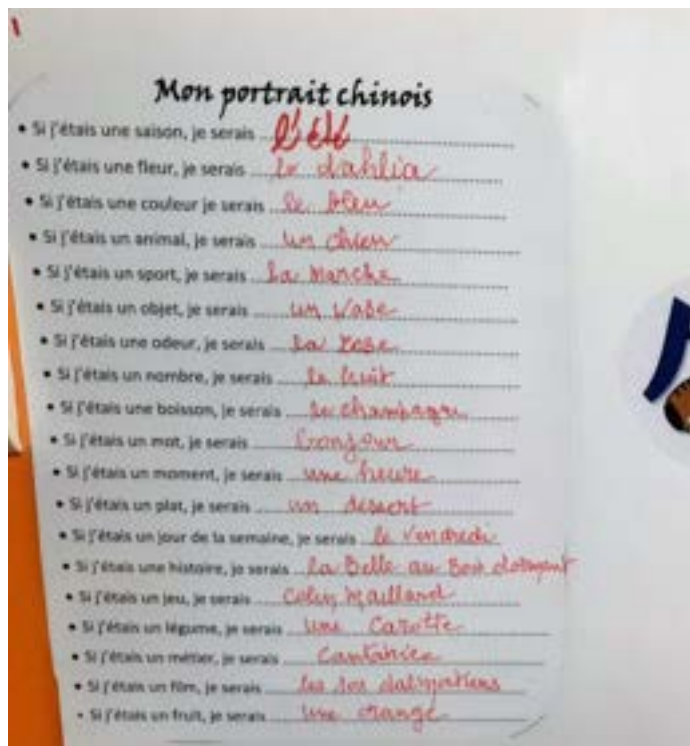 Mon portrait chinois
• Si j'étais une saison, je serais l'été
• Si j'étais une fleur, je serais le dahlia
• Si j'étais une couleur je serais le bleu
• Si j'étais un animal, je serais un chien
• Si j'étais un sport, je serais la marche
• Si j'étais un objet, je serais un vase
• Si j'étais une odeur, je serais la rose
• Si j'étais un nombre, je serais le huit
• Si j'étais une boisson, je serais le champagne
• Si j'étais un mot, je serais bonjour
• Si j'étais un moment, je serais une heure
• Si j'étais un plat, je serais un dessert
• Si j'étais un jour de la semaine, je serais le vendredi
• Si j'étais une histoire, je serais la Belle au Bois dormant
• Si j'étais un jeu, je serais Colin Maillard
• Si j'étais un légume, je serais une carotte
• Si j'étais un métier, je serais
• Si j'étais un film, je serais les 101 dalmatiens
• Si j'étais un fruit, je serais une orange